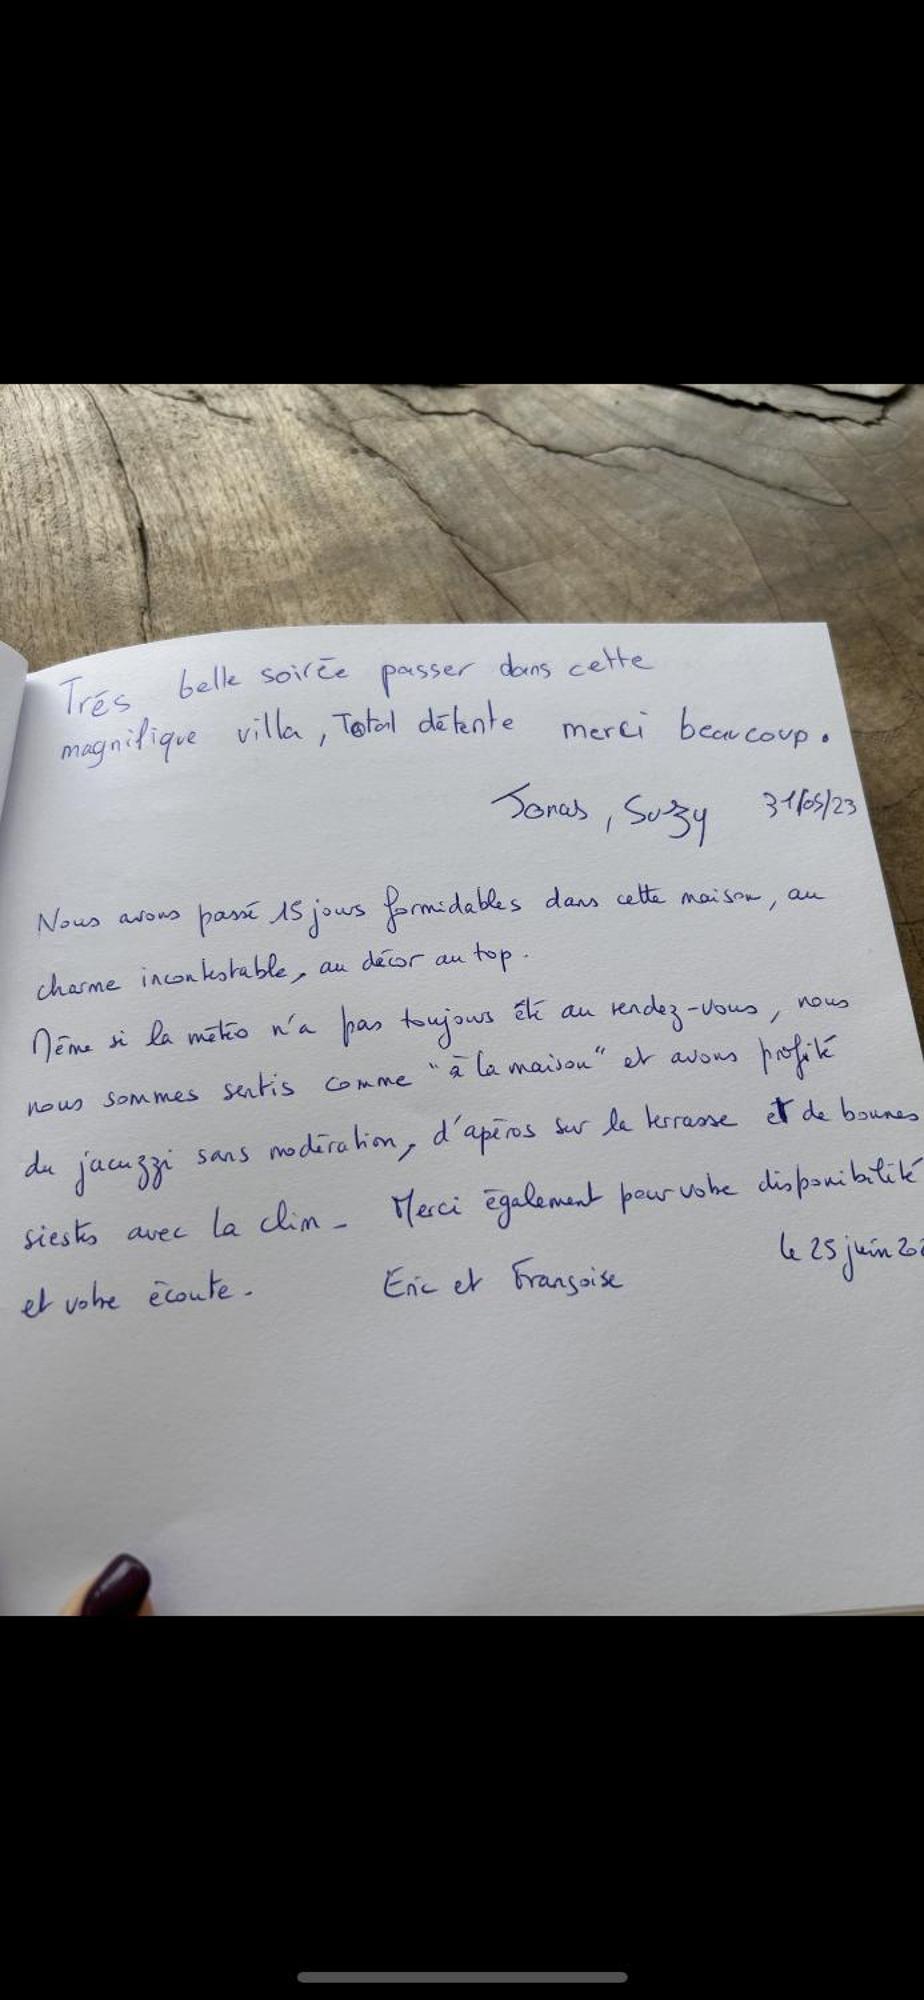 Trés belle soirée passer dans cette
magnifique villa, Total détente merci beaucoup.
Jonas, Suzy 31/05/23
Nous avons passé 15 jours formidables dans cette maison, au
charme incontestable, au décor au top.
Même si la météo n'a pas toujours été au rendez-vous, nous
nous sommes sentis comme "à la maison" et avons profité
du jacuzzi sans modération, d'apéros sur la terrasse et de bonnes
siestes avec la clim - Merci également pour votre disponibilité
et votre écoute. Eric et Françoise le 25 juin 202